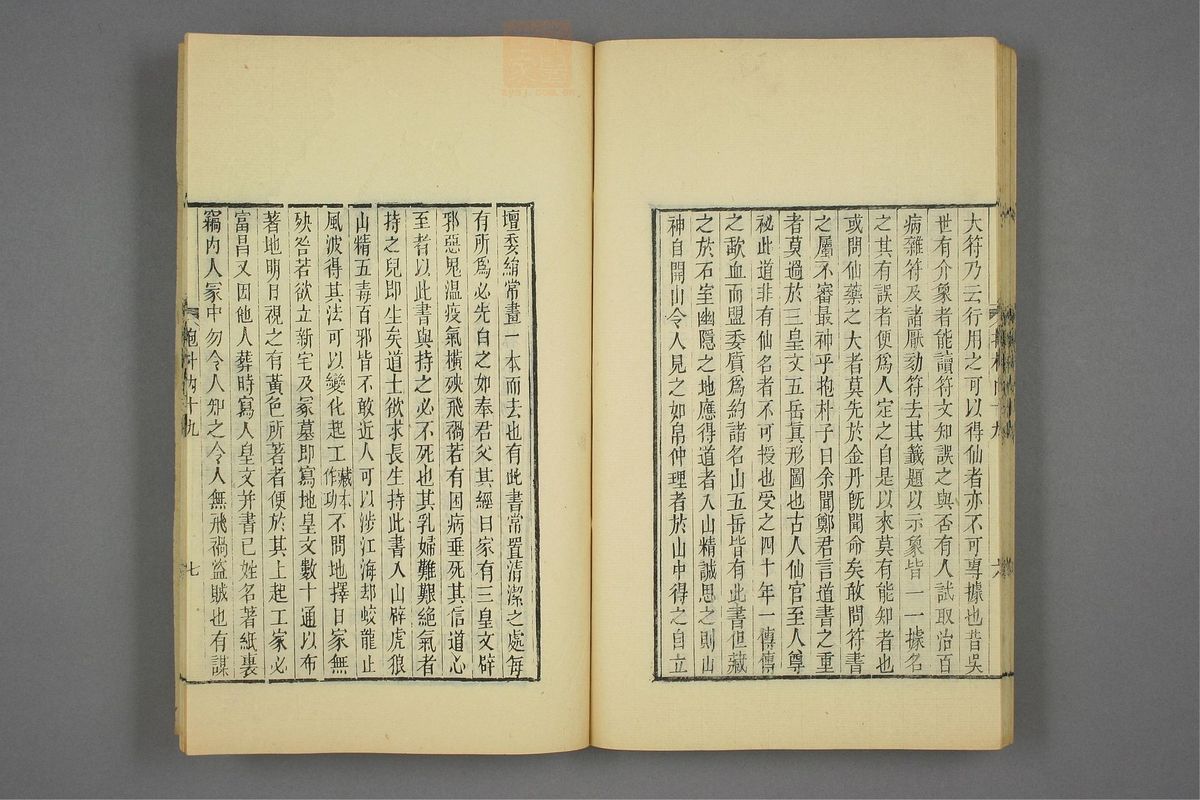 大符乃云行用之可以得仙者亦不可專據也昔吳
世有介象者能讀符文知誤之與否有人試取治百
病雜符及諸厭劾符去其籤題以示象皆一一據名
之其有誤者便爲人定之自是以來莫有能知者也
或問仙藥之大者莫先於金丹旣聞命矣敢問符書
之屬不審最神乎抱朴子曰余聞鄭君言道書之重
者莫過於三皇文五岳眞形圖也古人仙官至人尊
祕此道非有仙名者不可授也受之四十年一傳傳
之歃血而盟委質爲約諸名山五岳皆有此書但藏
之於石室幽隱之地應得道者入山精誠思之則山
神自開山令人見之如帛仲理者於山中得之自立
壇委絹常畫一本而去也有此書常置清潔之處每
有所爲必先白之如奉君父其經曰家有三皇文辟
邪惡鬼温疫氣橫殃飛禍若有困病垂死其信道心
至者以此書與持之必不死也其乳婦難艱絕氣者
持之兒即生矣道士欲求長生持此書入山辟虎狼
山精五毒百邪皆不敢近人可以涉江海却蛟龍止
風波得其法可以變化起工藏本作功不問地擇日家無
殃咎若欲立新宅及冢墓即寫地皇文數十通以布
著地明日視之有黃色所著者便於其上起工家必
富昌又因他人葬時寫人皇文幷書已姓名著紙裏
竊内人冢中勿令人知之令人無飛禍盜賊也有謀
抱朴内十九
七